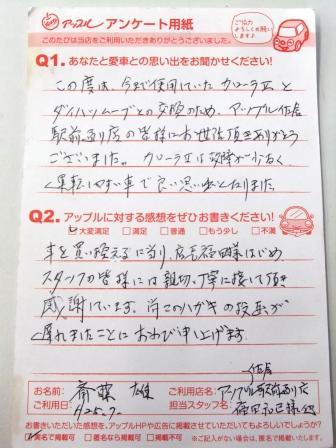 アップル/アンケート用紙
ご協力
よろしくお願い
します♪
このたびは当店をご利用いただきありがとうございました。
Q1. あなたと愛車との思い出をお聞かせください!
この度は、今まで使用していたカローラⅡと
ダイハツムーブとの交換のため、アップル佐倉
駅前通り店の皆様にお世話頂きありがとう
ございました。カローラⅡは故障が少なく
運転しやすい車で良い思い出となりました。
Q2. アップルに対する感想をぜひお書きください!
大変満足 □満足 □普通 □もう少し □不満
車を買い換えるに当り、店長 様はじめ、
スタッフの皆様には親切、丁寧に接して頂き
感謝しています。尚このハガキの投函が
遅れましたことにおわび申し上げます。
お名前: 斎藤 雄
ご利用日: 25.7.
ご利用店名: アップル佐倉駅前通り店
担当スタッフ名:
お書きいただいた感想を、アップルHPや広告に掲載させていただいてもよろしいでしょうか?
名で掲載可 □匿名なら掲載可 □掲載不可 ※ご記入がない場合は、匿名で掲載させていただく場合がございます。